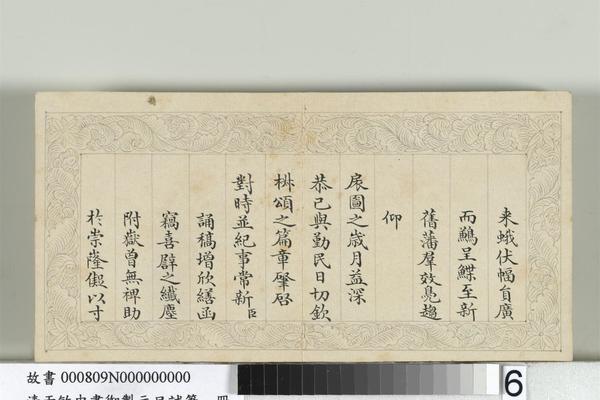 来蛾伏幅員廣
而鷫呈鰈至新
舊藩羣效鳧趨
仰
扆圖之歲月益深
恭己與勤民日切欽
椒頌之篇章肇啟
對時並紀事常新臣
誦稿增欣繕函
竊喜辟之纖塵
附嶽曾無裨助
於崇隆儗以寸
故書 000809N000000000
6